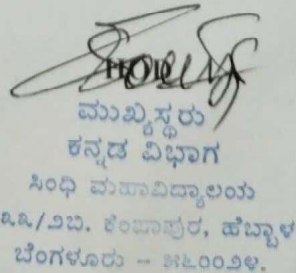 HOD
ಮುಖ್ಯಸ್ಥರು
ಕನ್ನಡ ವಿಭಾಗ
ಸಿಂಧಿ ಮಹಾವಿದ್ಯಾಲಯ
೩೩/೨ಬಿ. ಕೆಂಪಾಪುರ, ಹೆಬ್ಬಾಳ
ಬೆಂಗಳೂರು - ೫೬೦೦೨೪.